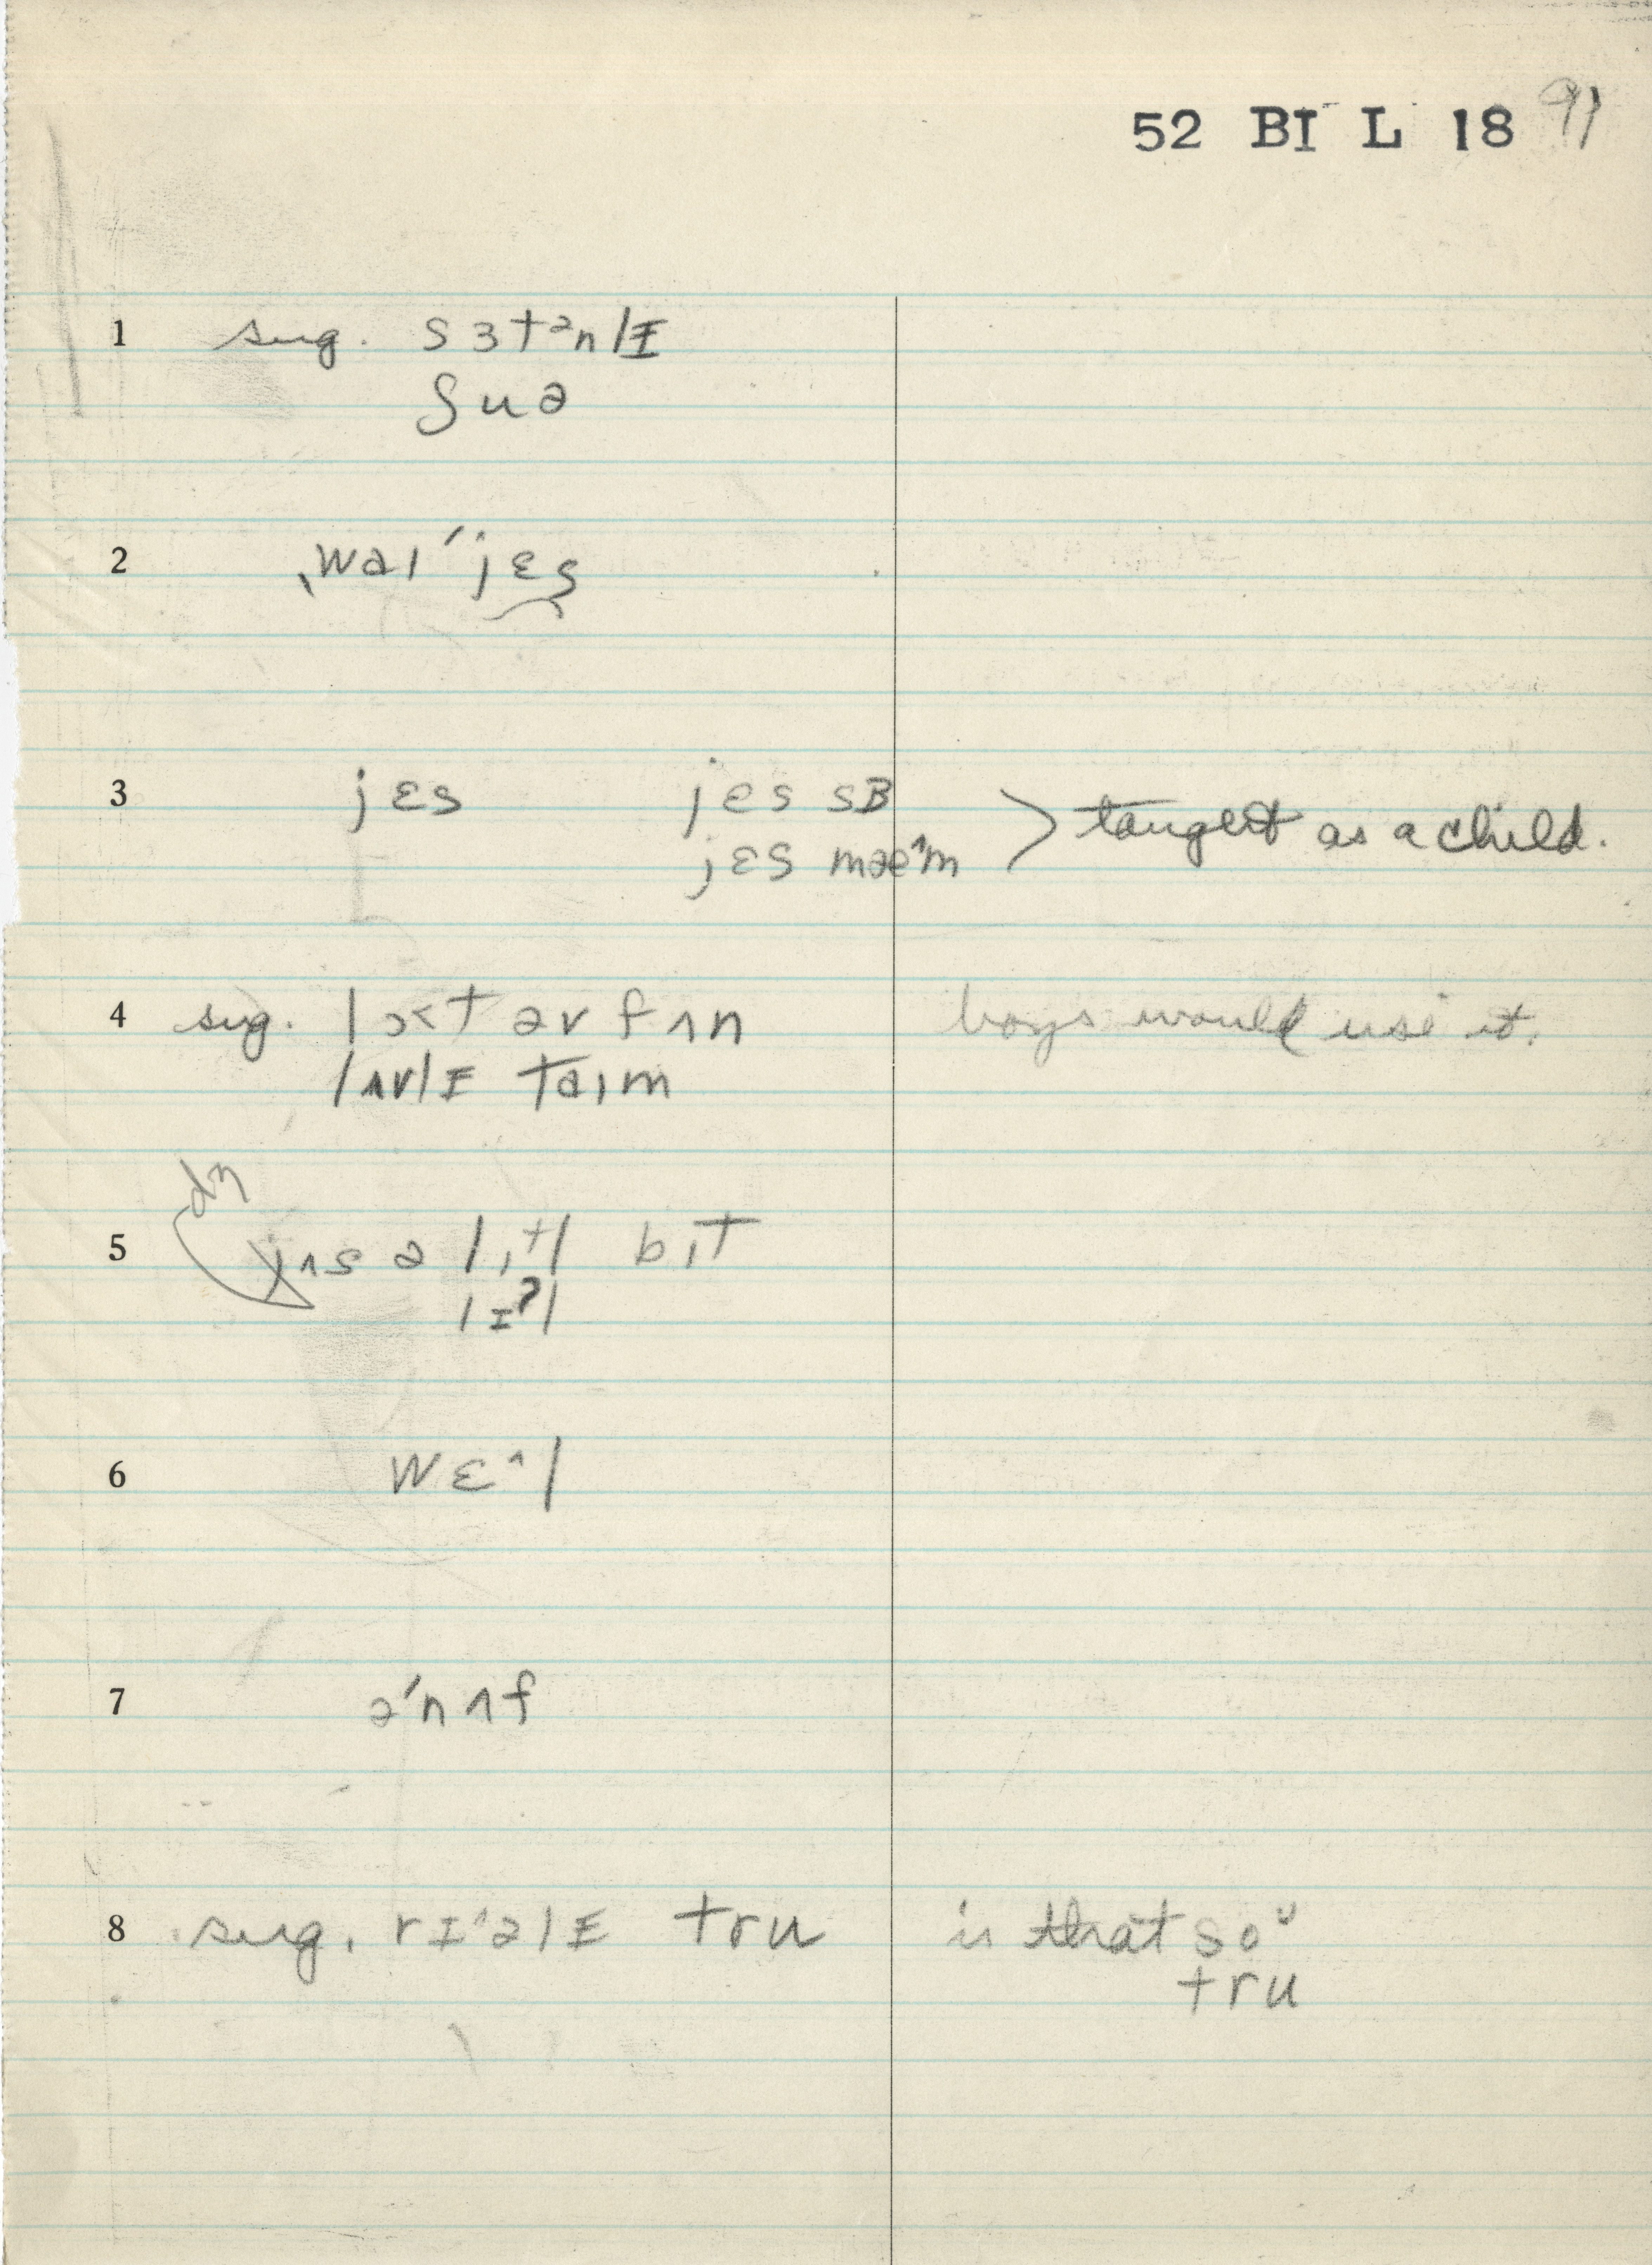 52 BI L 18 91
1 sug. sɜtᵊnlɪ
ʃuə
2 ˌwaɪ ˈjɛs
3 jɛs jɛs sɜ
jɛs mæˆm > taught as a child.
4 sug. lɔ<t əv fʌn boys would use it.
lʌvlɪ taɪm
dʒ
5 jʌs ə lɪtl bɪt
lɪʔl
6 wɛ^l
7 ə'nʌf
8 sug. rɪ^əlɪ tru is that soᵘ
tru